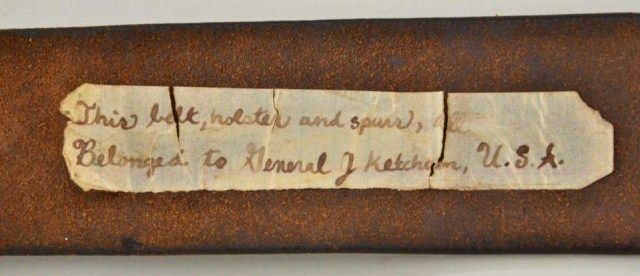 This belt, holster and spurs, all
Belonged to General J Ketchum, U.S.A.